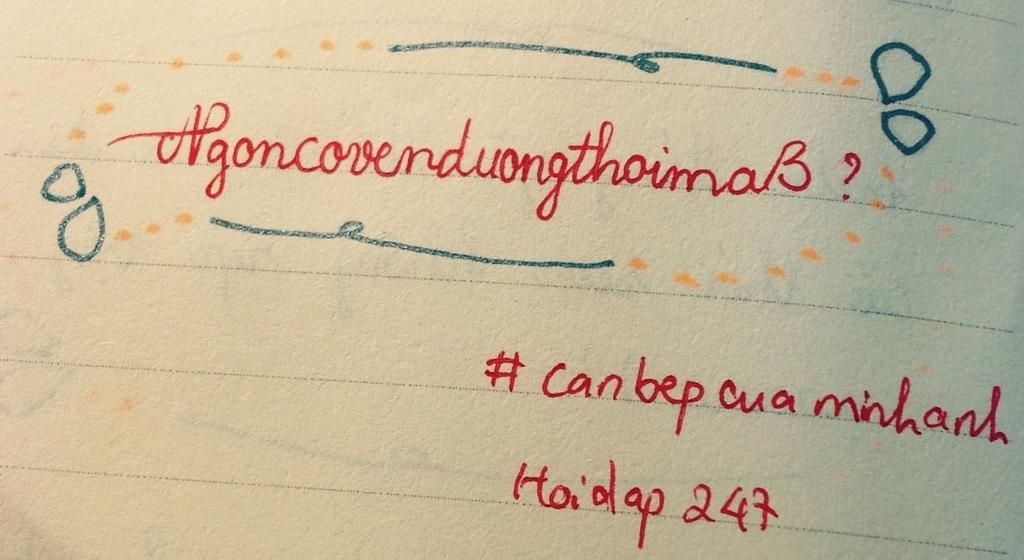 Ngoncovenduongthoima ß ?
# canbep cua minhanh
Hoidap 247